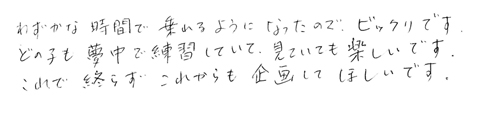 わずかな時間で乗れるようになったので、ビックリです.
どの子も夢中で練習していて、見ていても楽しいです.
これで終らずこれからも企画してほしいです.